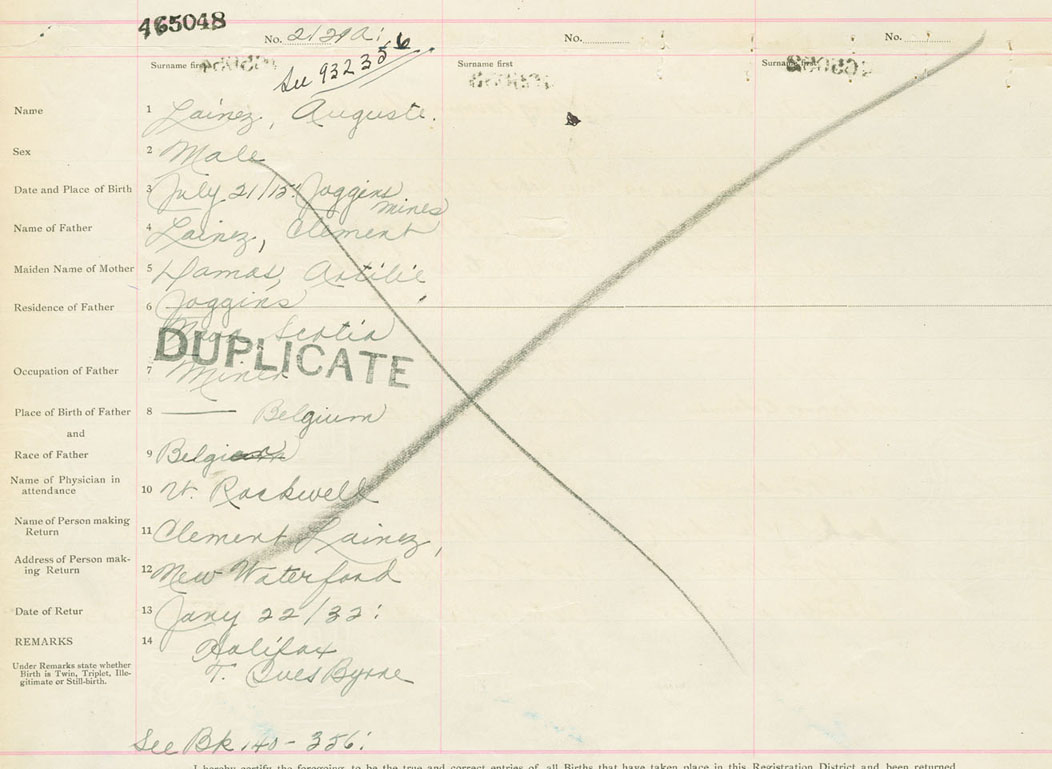 465048
No. 2129A: 6 No. No.
See 932356
Surname first Surname first Surname first
Name 1 Lainez, Auguste.
Sex 2 Male
Date and Place of Birth 3 July 21/15. Joggins
mines
Name of Father 4 Lainez, Clement
Maiden Name of Mother 5 Damas,
Residence of Father 6 Joggins
Nova Scotia
DUPLICATE
Occupation of Father 7 Miner
Place of Birth of Father 8 Belgium
and
Race of Father 9
Name of Physician in
attendance 10 W. Rockwell
Name of Person making
Return 11 Clement Lainez,
Address of Person mak-
ing Return 12 New Waterford
Date of Retur 13 Jany 22/32:
REMARKS 14 Halifax
Under Remarks state whether
Birth is Twin, Triplet, Ille-
gitimate or Still-birth.
T. Ives Byrne
See Bk 140 - 356:
I hereby certify the foregoing to be the true and correct entries of all Births that have taken place in this Registration District and been returned